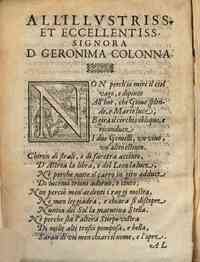 ALL'ILLVSTRISS.
ET ECCELLENTISS.
SIGNORA
D GERONIMA COLONNA.
NON perch'io miri il ciel
vago, e dipinto
All'hor, che Gioue splende, e Marte luce;
E gira il cerchio obliquo, e
riconduce
I duo Gemelli, un viuo,
un'altro estinto.
Chiron di strali, e di faretra accinto,
D'Astrea la libra, e del Leon la luce,
Ne perche notte il carro in giro adduce
Di lucenti trioni adorno, e cinto;
Non perciò men' ardenti i raggi mostra,
Ne men leggiadra, e chiara si discopre
Nuntia del Sol la matutina Stella.
Nè perche sia l'altera Stirpe vostra
Di mille altri fregi pomposa, e bella,
Saran di voi men chiari il nome, e l'opre.
A L